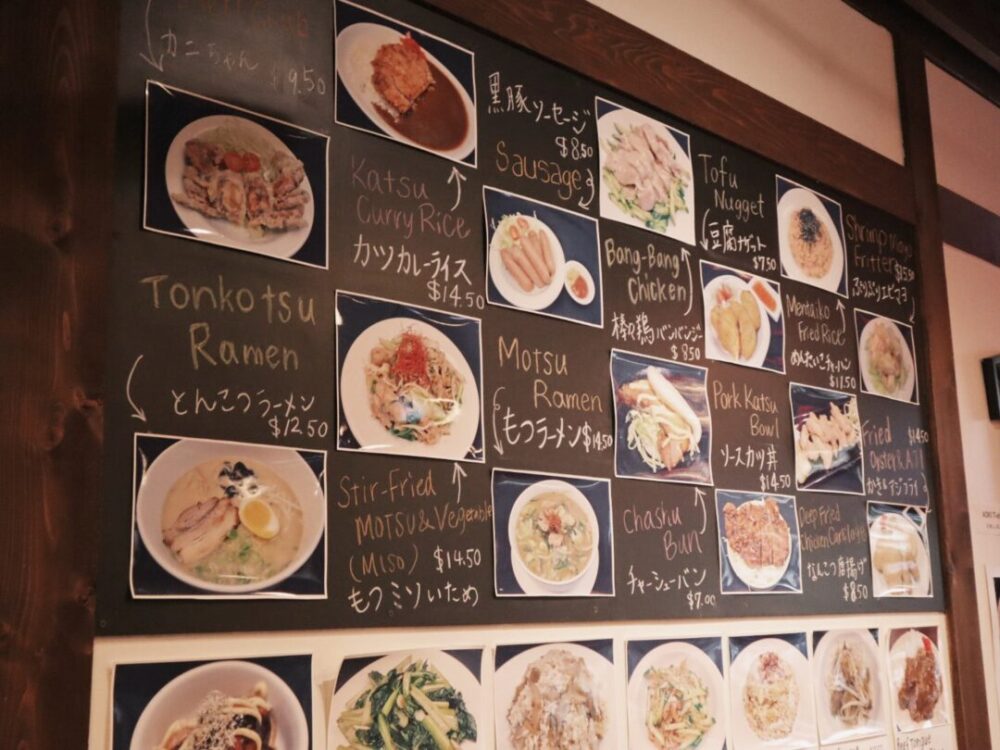 カニちゃん
$9.50
Katsu
Curry Rice
カツカレーライス
$14.50
黒豚ソーセージ
$8.50
Sausage
Tofu
Nugget
豆腐ナゲット
$7.50
Bang-Bang
Chicken
棒々鶏 バンバンジー
$8.50
Shrimp Mayo
Fritter
ぷりぷりエビマヨ
Mentaiko
Fried Rice
めんたいこチャーハン
Tonkotsu
Ramen
とんこつラーメン
$12.50
Motsu
Ramen
もつラーメン $14.50
Pork Katsu
Bowl
ソースカツ丼
$14.50
Fried $14.50
Oyster & AJI
かき&アジフライ
Stir-Fried
MOTSU & Vegetable
(MISO) $14.50
もつミソいため
Chashu
Bun
チャーシューバン
$7.00
Deep Fried
Chicken Cartilage
なんこつ唐揚げ
$8.50